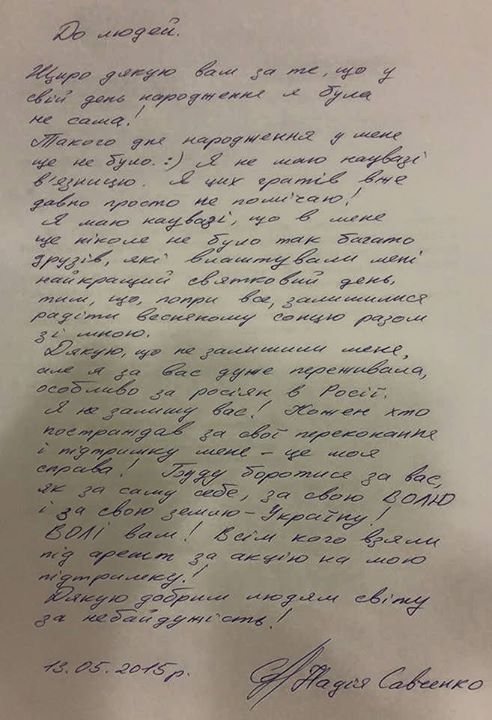 До людей.
Щиро дякую вам за те, що у
свій день народження я була
не сама!
Такого дня народження у мене
ще не було. :) Я не маю наувазі
в'язницю. Я цих гратів вже
давно просто не помічаю!
Я маю наувазі, що в мене
ще ніколи не було так багато
друзів, які влаштували мені
найкращий святковий день,
тим, що, попри все, залишилися
радіти весняному сонцю разом
зі мною.
Дякую, що не залишили мене,
але я за вас дуже переживала,
особливо за росіян в Росії.
Я не залишу вас! Кожен хто
постраждав за свої переконання
і підтримку мене - це моя
справа! Буду боротися за вас,
як за саму себе, за свою ВОЛЮ
і за свою землю - Україну!
ВОЛІ вам! Всім кого взяли
під арешт за акцію на мою
підтримку!
Дякую добрим людям світу
за небайдужість!
13.05.2015р. Надія Савченко